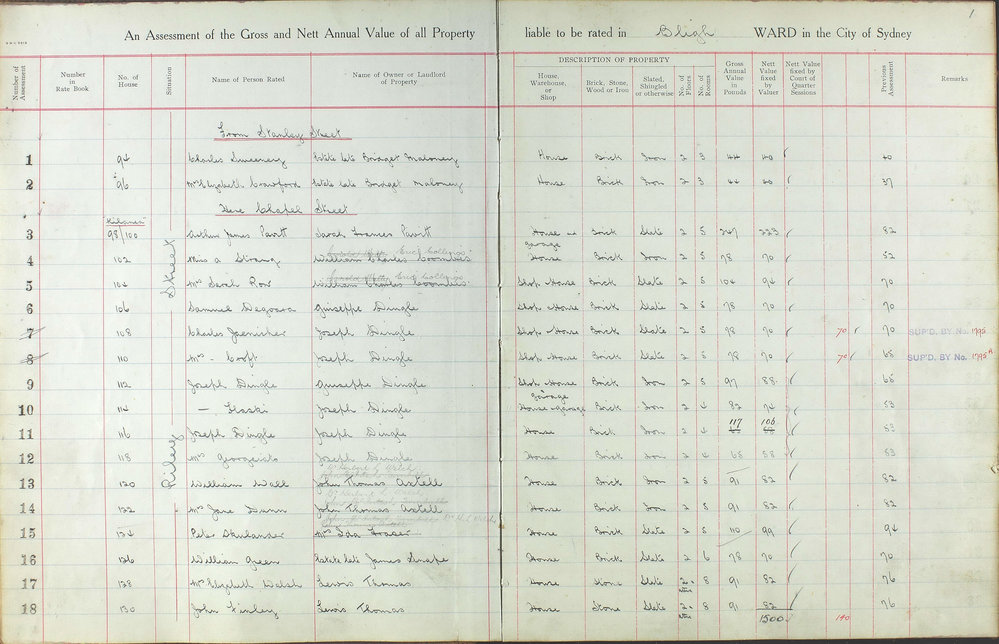 1
An Assessment of the Gross and Nett Annual Value of all Property liable to be rated in Bligh WARD in the City of Sydney
DESCRIPTION OF PROPERTY
Number of Assessment
Number in Rate Book
No. of House
Situation
Name of Person Rated
Name of Owner or Landlord of Property
House, Warehouse, or Shop
Brick, Stone, Wood or Iron
Slated, Shingled or otherwise
No. of Floors
No. of Rooms
Gross Annual Value in Pounds
Nett Value fixed by Valuer
Nett Value fixed by Court of Quarter Sessions
Previous Assessment
Remarks
Riley Street
From Stanley Street
1 94 Charles Sweeney Estate late Bridget Maloney House Brick Iron 2 3 44 40 40
2 96 Mrs Elizabeth Crawford Estate late Bridget Maloney House Brick Iron 2 3 44 40 37
Here Chapel Street
3 98/100 Arthur James Pavitt Sarah Frances Pavitt House & garage Brick Slate 2 5 247 223 82
4 102 Miss a Strang William Charles House Brick Iron 2 5 78 70 52
5 104 Mrs Sarah Row William Charles Shop House Brick Slate 2 5 104 94 70
6 106 Samuel Giuseppe Dingle Shop House Brick Slate 2 5 78 70 70
7 108 Charles Joseph Dingle Shop House Brick Slate 2 5 78 70 70 70 SUP'D. BY No. 1795
8 110 Mrs - Croft Joseph Dingle Shop House Brick Slate 2 5 78 70 70 65 SUP'D. BY No. 1795A
9 112 Joseph Dingle Giuseppe Dingle Shop House Brick Iron 2 5 97 88 65
10 114 — Joseph Dingle House & garage Brick Iron 2 4 82 74 53
117 106
11 116 Joseph Dingle Joseph Dingle House Brick Iron 2 4 53
12 118 Mrs Joseph Dingle House Brick Iron 2 4 65 58 53
13 120 William Wall John Thomas Axtell House Brick Iron 2 5 91 82 82
14 122 Mrs Jane Dunn John Thomas Axtell House Brick Iron 2 5 91 82 82
15 124 Peter Mrs Ida Fraser House Brick Slate 2 5 110 99 94
16 126 William Green Estate late James House Brick Slate 2 6 78 70 70
17 128 Mrs Elizabeth Walsh Lewis Thomas House Stone Slate 2 8 91 82 76
18 130 John Finley Lewis Thomas House Stone Slate 2 8 91 82 76
1500 140